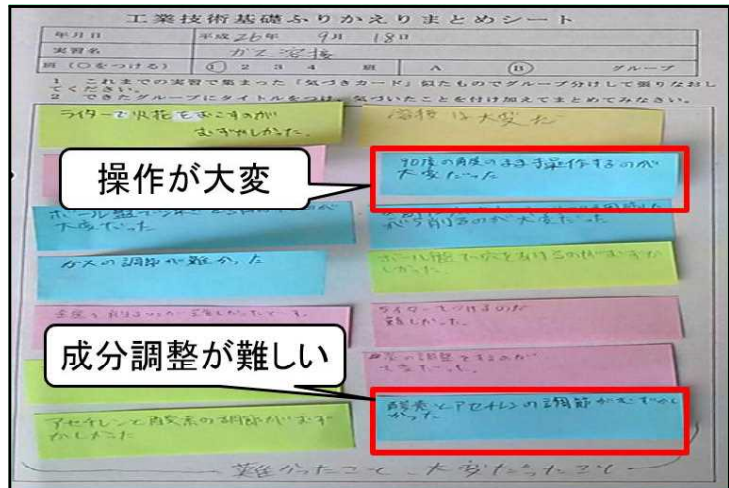 工業技術基礎ふりかえりまとめシート
年月日 平成26年 9月 18日
実習名 ガス溶接
班（○をつける） 1 2 3 4 班 A B グループ
1 これまでの実習で集まった「気づきカード」似たものでグループ分けして張りなおしてください。
2 できたグループにタイトルをつけ、気づいたことを付け加えてまとめてみなさい。
ライターで火花をおこすのが
むずかしかった。
溶接は大変だ
操作が大変
90度の角度のまま操作するのが
大変だった
ボール盤で
大変だった
が大変だった
ガスの調節が難かった
ボール盤で穴をあけるのがむずか
しかった。
ライターでつけるのが
難しかった。
成分調整が難しい
の調整をするのが
大変だった。
アセチレンと酸素の調節がむず
かしかった
酸素とアセチレンの調節がむずかし
かった
難かったこと、大変だったこと